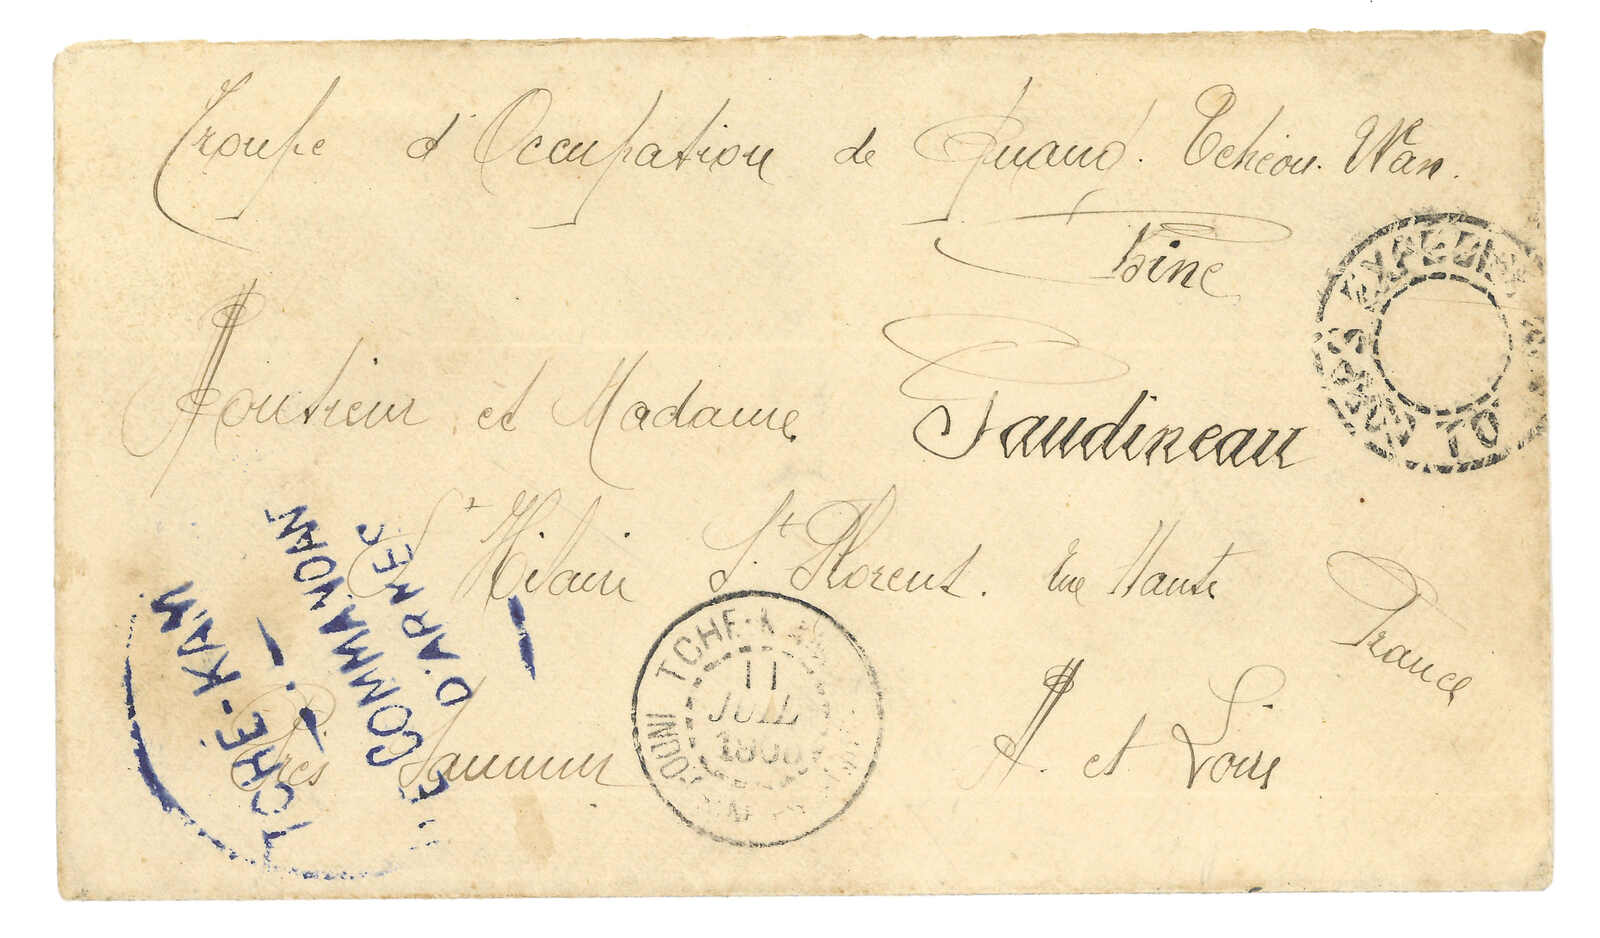 Troupe d'Occupation de Quang. Tchéou. Wan.
Chine
Monsieur et Madame Gaudineau
St Hilaire St Florent. rue Haute
France
Près Saumur
M. et Loire
TCHÉ-KAM
COMMANDANT
D'ARMES
TCHE-K
11
JUIL
CORPS EXPEDIT
TO